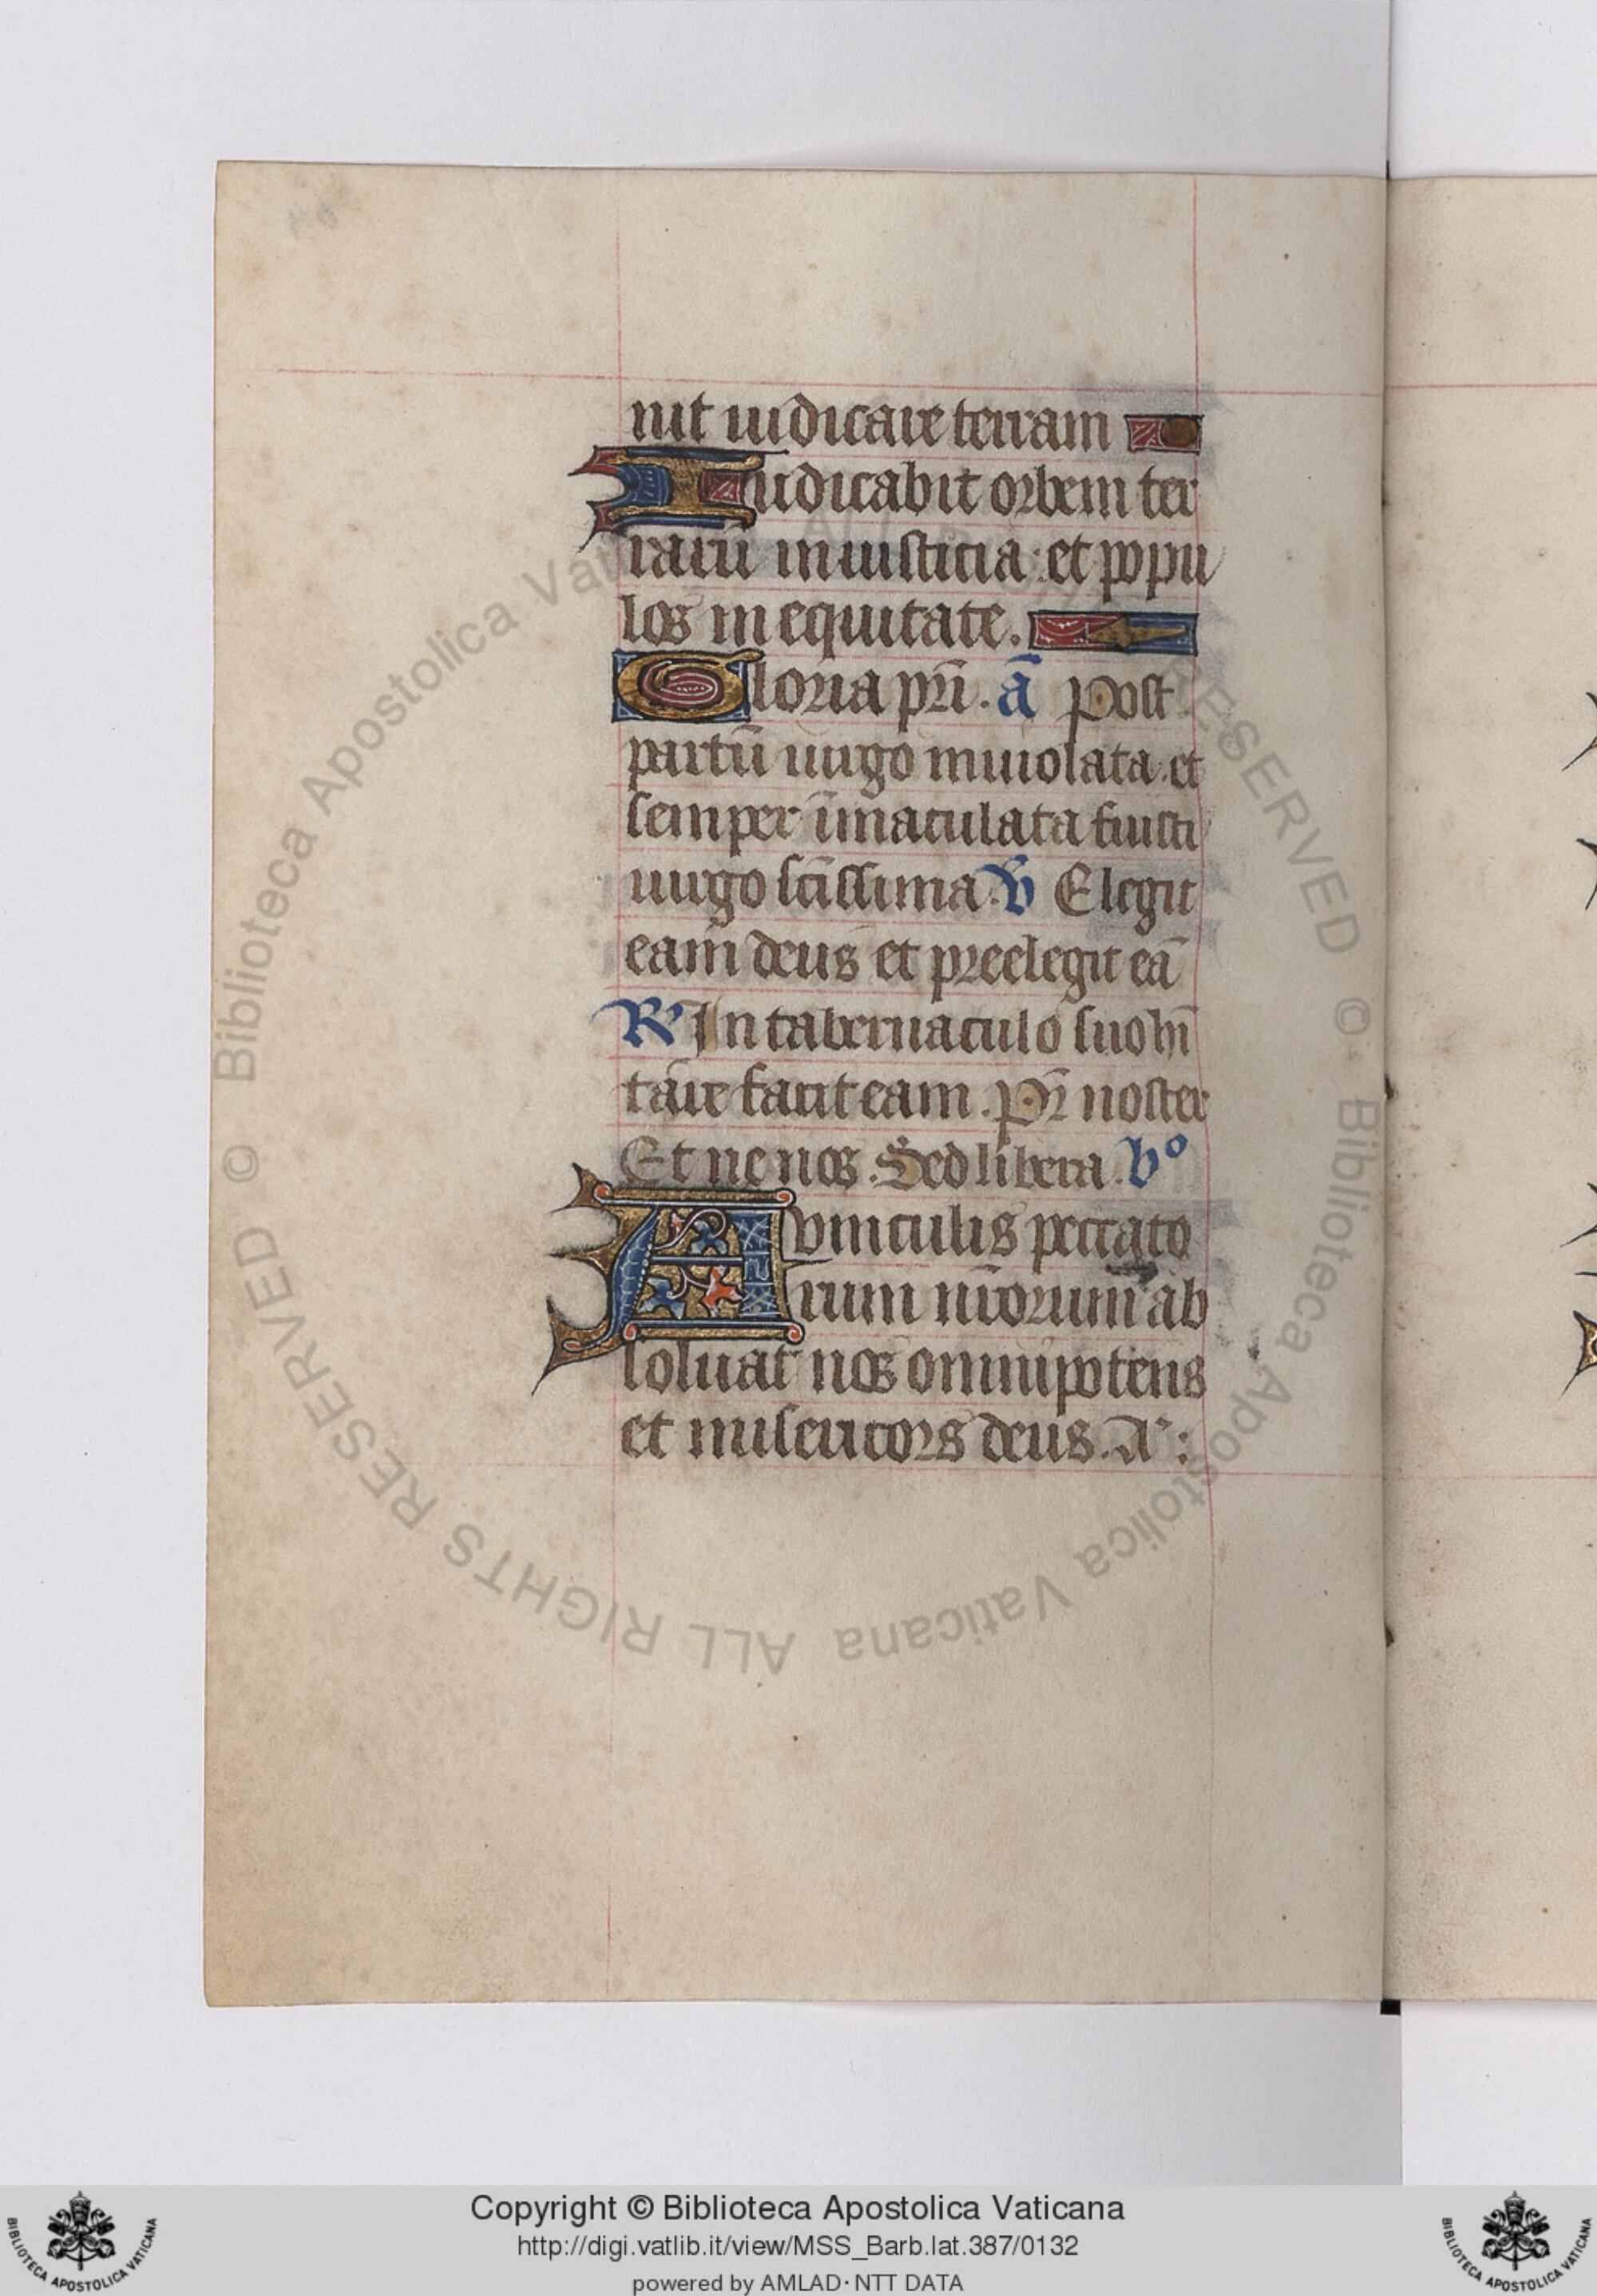 nit iudicare terram
Iudicabit orbem ter
rarū in iusticia: et popu
los in equitate.
Gloria pr̄i. ā Post
partū uirgo inuiolata et
semper īmaculata fuisti
uirgo sc̄issima. V̄ Elegit
eam deus et preelegit eā
R̷ In tabernaculo suo hī
tāre facit eam. Pr̄ noster
Et ne nos. Sed libera. bº
A vinculis peccato
rum nr̄orum ab
soluat nos omnipotens
et misericors deus. A':
© Biblioteca Apostolica Vaticana ALL RIGHTS RESERVED © Biblioteca Apostolica Vaticana ALL RIGHTS RESERVED
Copyright © Biblioteca Apostolica Vaticana
http://digi.vatlib.it/view/MSS_Barb.lat.387/0132
powered by AMLAD·NTT DATA
BIBLIOTECA APOSTOLICA VATICANA
BIBLIOTECA APOSTOLICA VATICANA